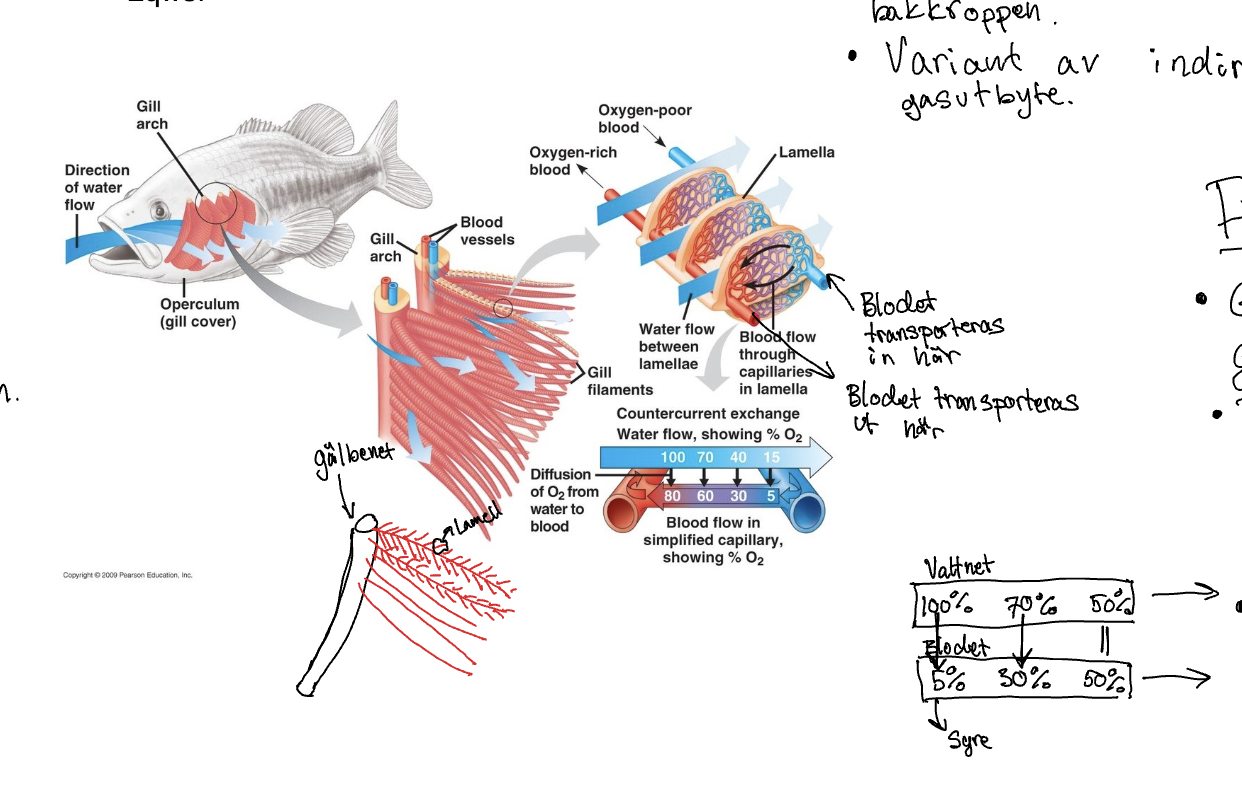 bakkroppen.
• Variant av
gasutbyte.
Gill
arch
Direction
of water
flow
Operculum
(gill cover)
Gill
arch
Blood
vessels
Gill
filaments
Oxygen-poor
blood
Oxygen-rich
blood
Lamella
Water flow
between
lamellae
Blood flow
through
capillaries
in lamella
Blodet
transporteras
in här
Blodet transporteras
ut här
Countercurrent exchange
Water flow, showing % O2
100 70 40 15
Diffusion
of O2 from
water to
blood
80 60 30 5
Blood flow in
simplified capillary,
showing % O2
gälbenet
Lamell
Copyright © 2009 Pearson Education, Inc.
Vattnet
100% 70% 50%
Blodet
5% 30% 50%
Syre